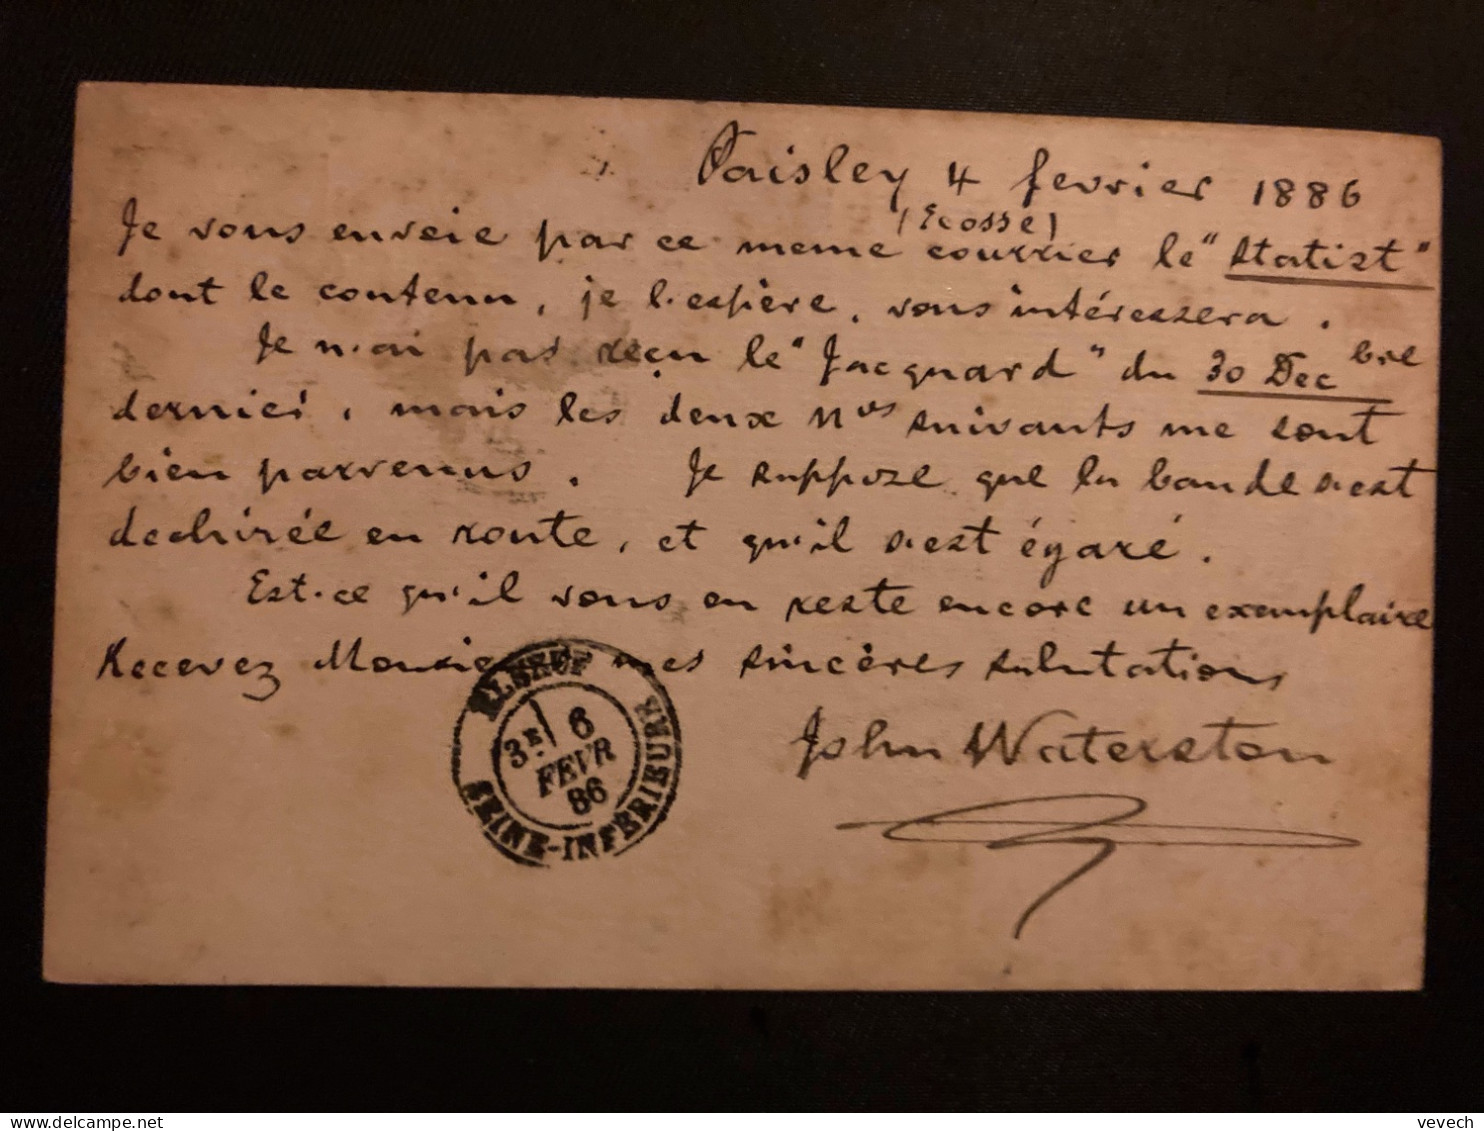 Paisley 4 fevrier 1886
(Ecosse)
Je vous enveie par ce meme courrier le "Statist"
dont le contenu, je l'espère, vous intéressera.
Je n'ai pas reçu le "Jacquard" du 30 Decbre
dernier, mais les deux Nos suivants me sont
bien parvenus. Je suppose que la bande s'est
dechirée en route, et qu'il s'est égaré.
Est-ce qu'il vous en reste encore un exemplaire
Recevez Monsieur mes sincères salutations
John Waterston
ELBEUF
3E 6
FEVR
86
SEINE-INFERIEURE
vevech